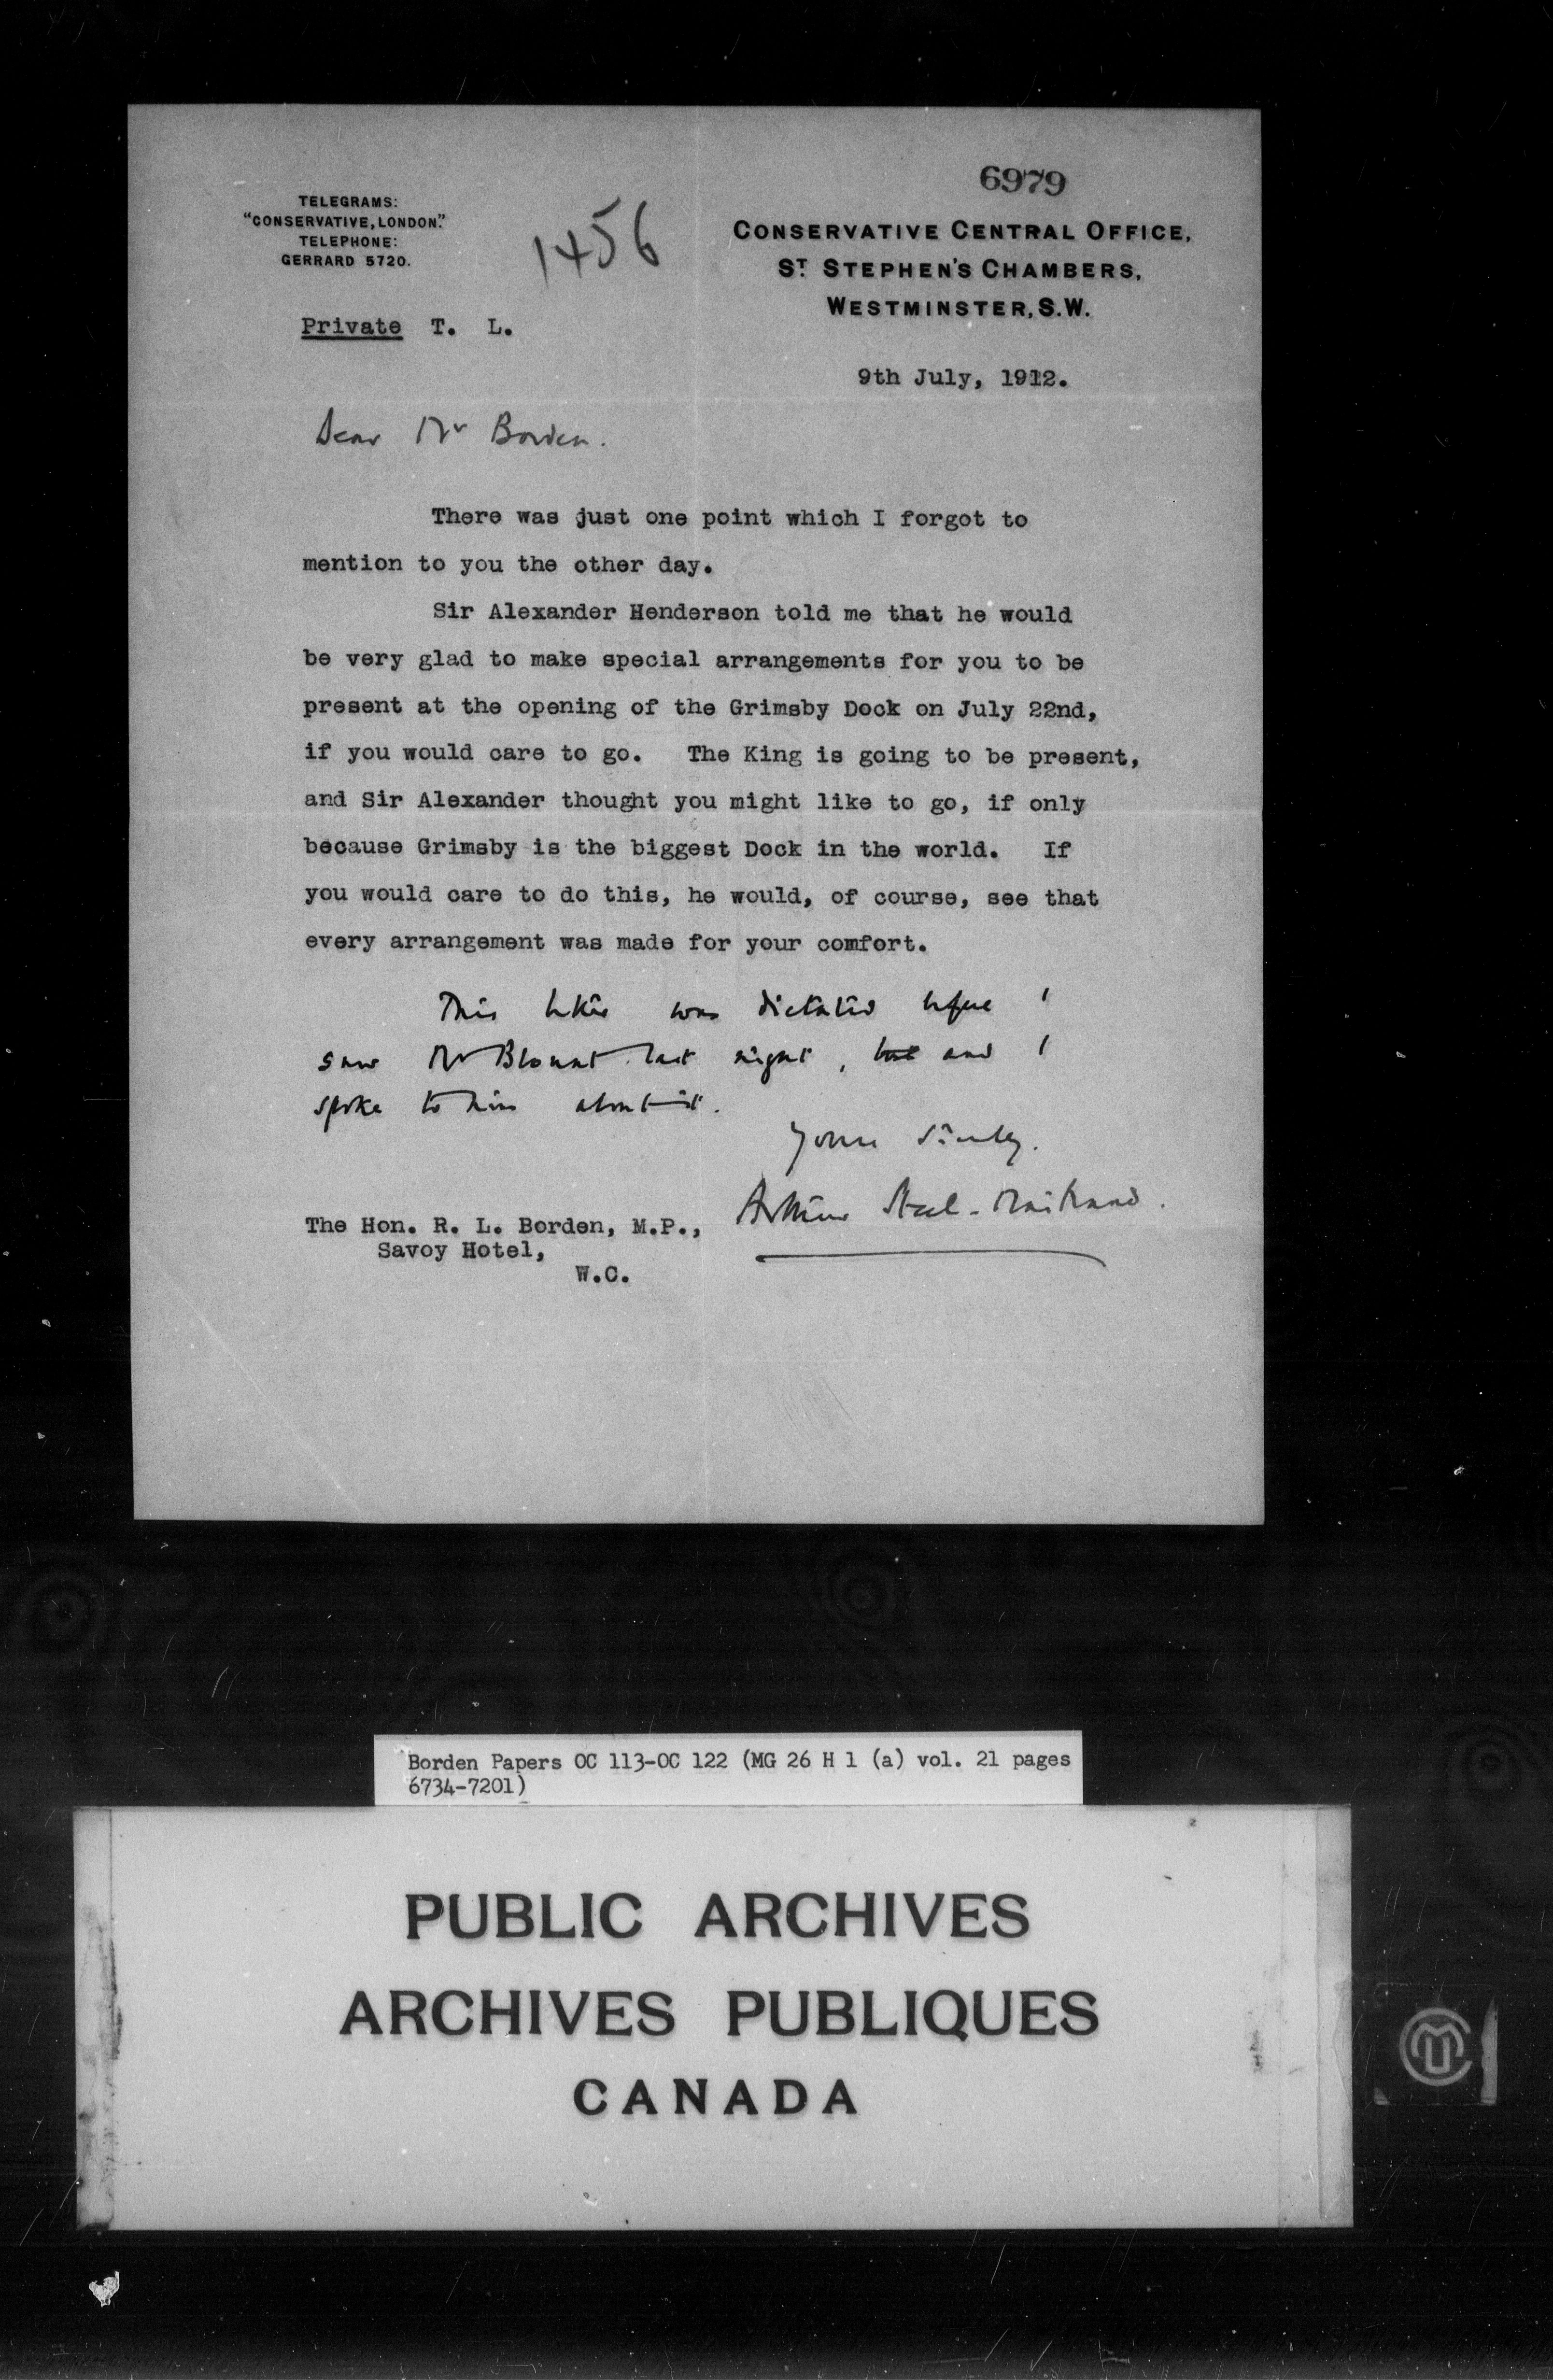 6979
TELEGRAMS:
"CONSERVATIVE, LONDON."
TELEPHONE:
GERRARD 5720.
1456
CONSERVATIVE CENTRAL OFFICE,
ST STEPHEN'S CHAMBERS,
WESTMINSTER, S.W.
Private T. L.
9th July, 1912.
Dear Mr Borden.
There was just one point which I forgot to
mention to you the other day.
Sir Alexander Henderson told me that he would
be very glad to make special arrangements for you to be
present at the opening of the Grimsby Dock on July 22nd,
if you would care to go. The King is going to be present,
and Sir Alexander thought you might like to go, if only
because Grimsby is the biggest Dock in the world. If
you would care to do this, he would, of course, see that
every arrangement was made for your comfort.
This letter was dictated before I
saw Mr Blount last night, but and I
spoke to him about it.
Yours sincerely.
Arthur Steel-Maitland.
The Hon. R. L. Borden, M.P.,
Savoy Hotel,
W.C.
Borden Papers OC 113-OC 122 (MG 26 H 1 (a) vol. 21 pages
6734-7201)
PUBLIC ARCHIVES
ARCHIVES PUBLIQUES
CANADA